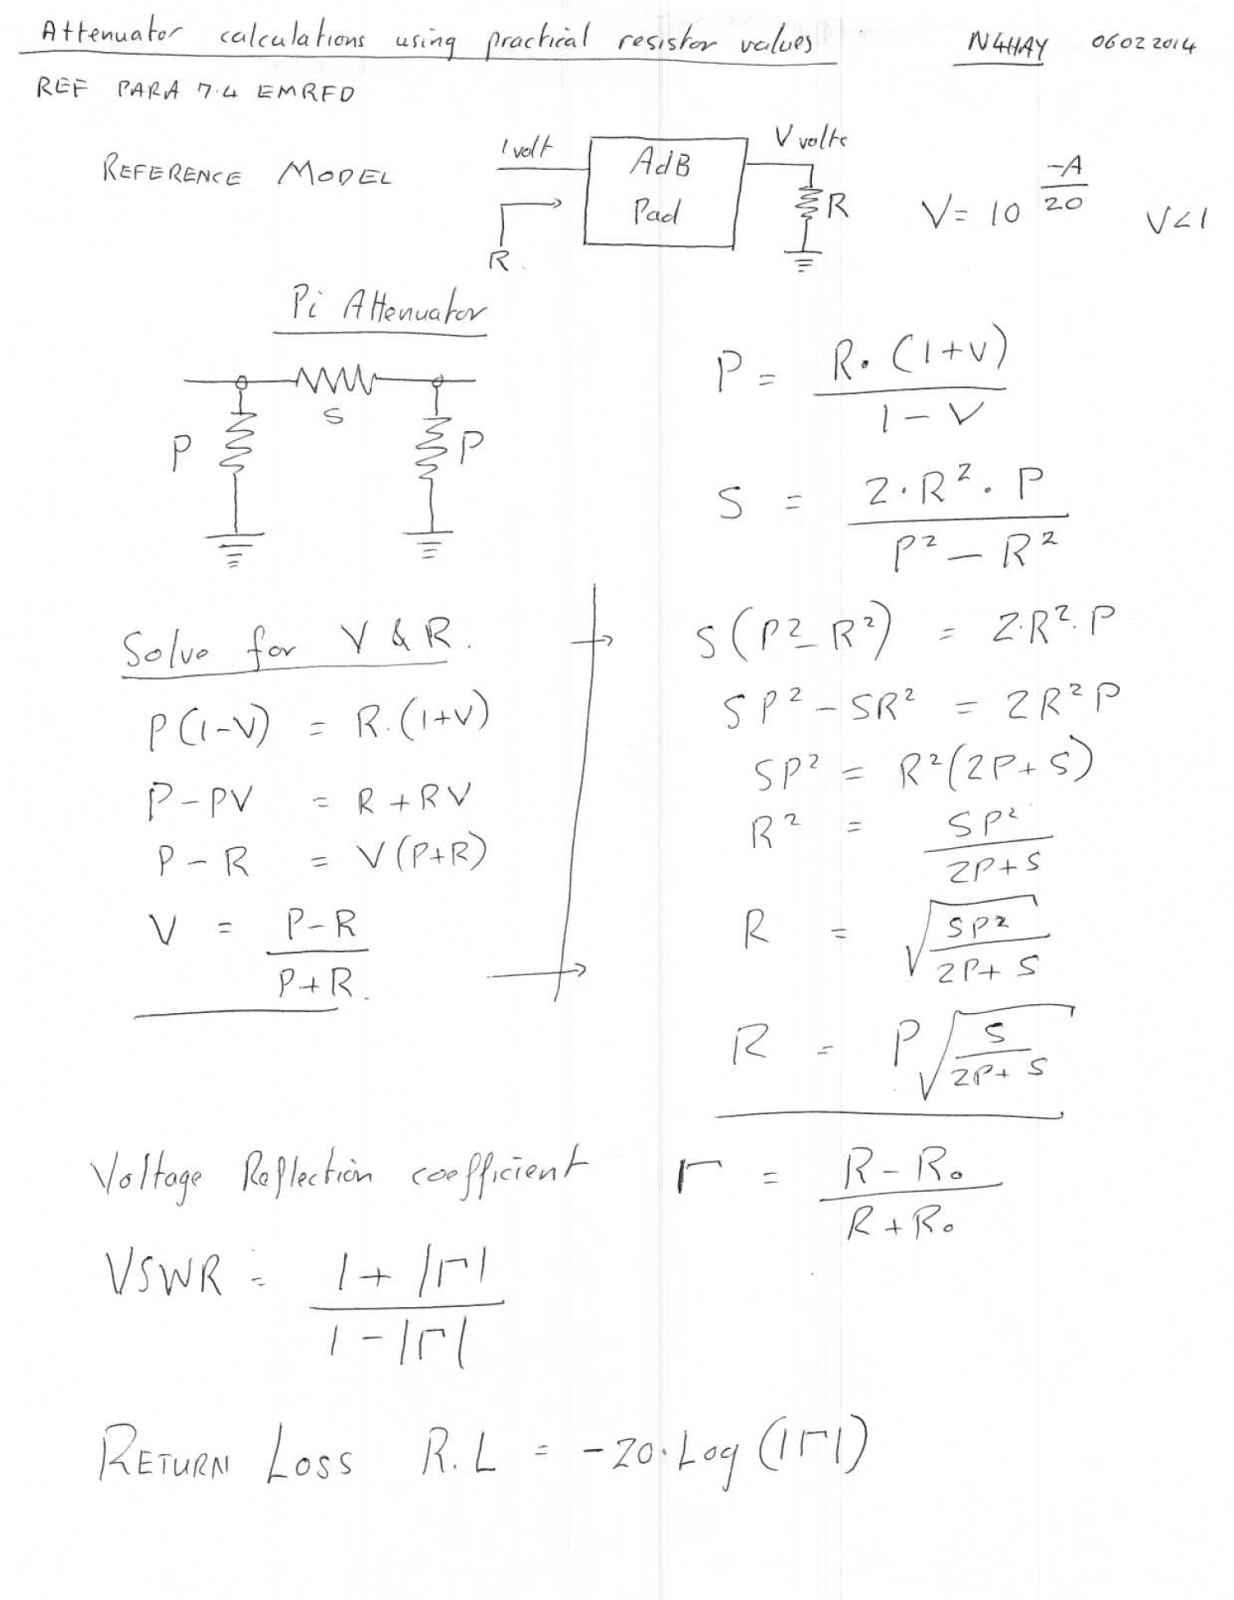 Attenuator calculations using practical resistor values N4HAY 06022014
REF PARA 7.4 EMRFD
REFERENCE MODEL
1 volt
AdB
Pad
V volts
R
R.
V = 10^(-A/20) V<1
Pi Attenuator
S
P
P
P = R.(1+V) / 1-V
S = 2.R².P / P²-R²
Solve for V & R.
P(1-V) = R.(1+V)
P-PV = R+RV
P-R = V(P+R)
V = P-R / P+R.
S(P²-R²) = 2.R².P
SP²-SR² = 2R²P
SP² = R²(2P+S)
R² = SP² / 2P+S
R = √(SP² / 2P+S)
R = P√(S / 2P+S)
Voltage Reflection coefficient Γ = R-R₀ / R+R₀
VSWR = 1+|Γ| / 1-|Γ|
RETURN LOSS R.L = -20.Log(|Γ|)